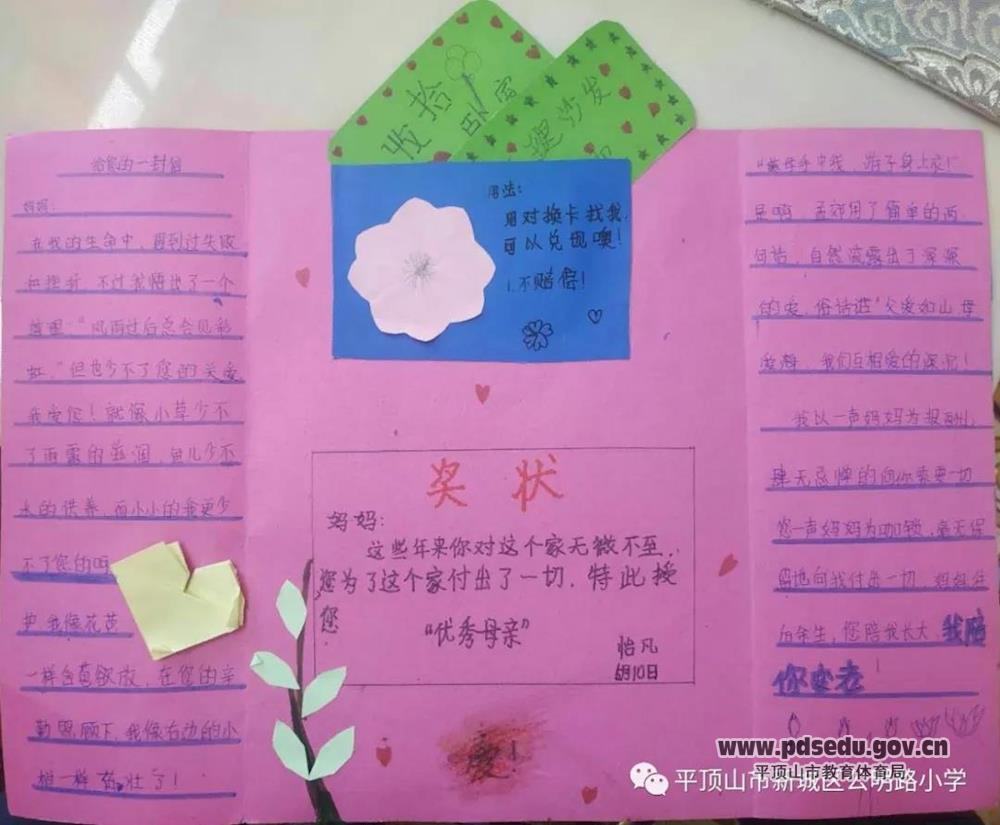 收拾
卧室
整理沙发
用法:
用对换卡找我,
可以兑现噢!
1.不赔偿!
给您的一封信
妈妈:
在我的生命中,遇到过失败
和挫折,不过我悟出了一个
道理:“风雨过后总会见彩
虹。”但也少不了您的关爱
我爱您!就像小草少不
了雨露的滋润,鱼儿少不
水的供养,而小小的我更少
不了您的呵
护 我像花苞
一样含苞欲放,在您的辛
勤照顾下,我像右边的小
树一样 茁壮了!
奖 状
妈妈:
这些年来你对这个家无微不至,
您为了这个家付出了一切.特此授
您
“优秀母亲”
怡凡
10日
爱!
“慈母手中线,游子身上衣!”
是啊,孟郊用了简单的两
句话,自然流露出了深深
的爱,俗话说“父爱如山 母
爱,我们互相爱的深沉!
我以一声妈妈为报酬,
肆无忌惮的向你索要一切
您一声妈妈为枷锁,毫无保
留地向我付出一切,妈妈往
后余生,您陪我长大,我陪
你变老!
www.pdsedu.gov.cn
平顶山市教育体育局
平顶山市新城区公明路小学